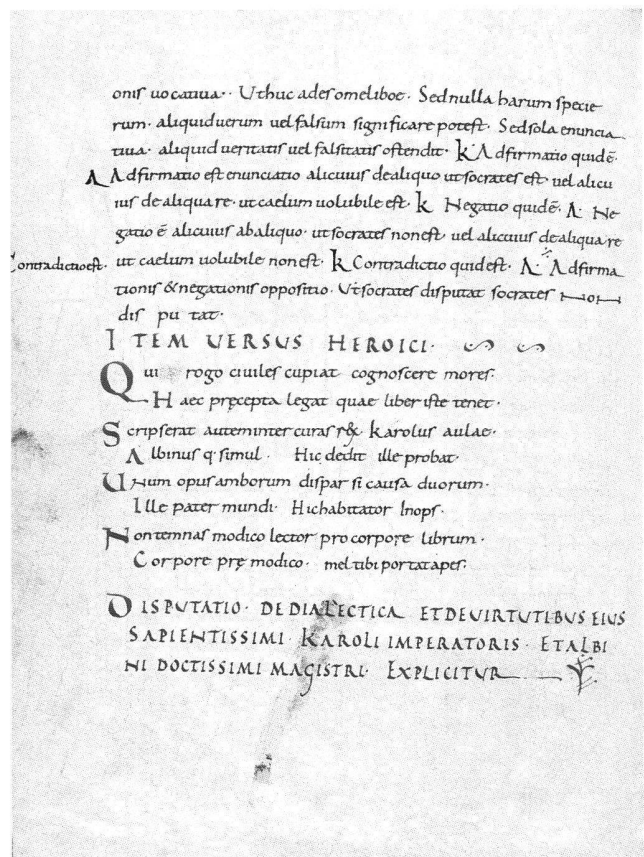 onis uocatiua·· Ut huc ades omeliboe· Sed nulla harum specie
rum· aliquid uerum uel falsum significare potest· Sed sola enuncia
tiua· aliquid ueritatis uel falsitatis ostendit· K Adfirmatio quidē·
A Adfirmatio est enunciatio alicuius dealiquo ut socrates est· uel alicu
ius de aliqua re· ut caelum uolubile est· K Negatio quidē· A· Ne
gatio ē alicuius abaliquo· ut socrates non est· uel alicuius de aliqua re
Contradictio est· ut caelum uolubile non est· K Contradictio quid est· A· Adfirma
tionis & negationis oppositio· Ut socrates disputat socrates non
dis pu tat·
ITEM UERSUS HEROICI·
Qui rogo ciuiles cupiat cognoscere mores·
Haec pręcepta legat quae liber iste tenet·
Scripserat autem inter curas rex karolus aulae·
Albinus q· simul· Hic dedit ille probat·
Unum opus amborum dispar si causa duorum·
Ille pater mundi· Hic habitator Inops·
Non temnas modico lector pro corpore librum·
Corpore pre modico· mel tibi portat apes·
DISPUTATIO· DE DIALECTICA ET DE UIRTUTIBUS EIUS
SAPIENTISSIMI· KAROLI IMPERATORIS· ET ALBI
NI DOCTISSIMI MAGISTRI· EXPLICITUR